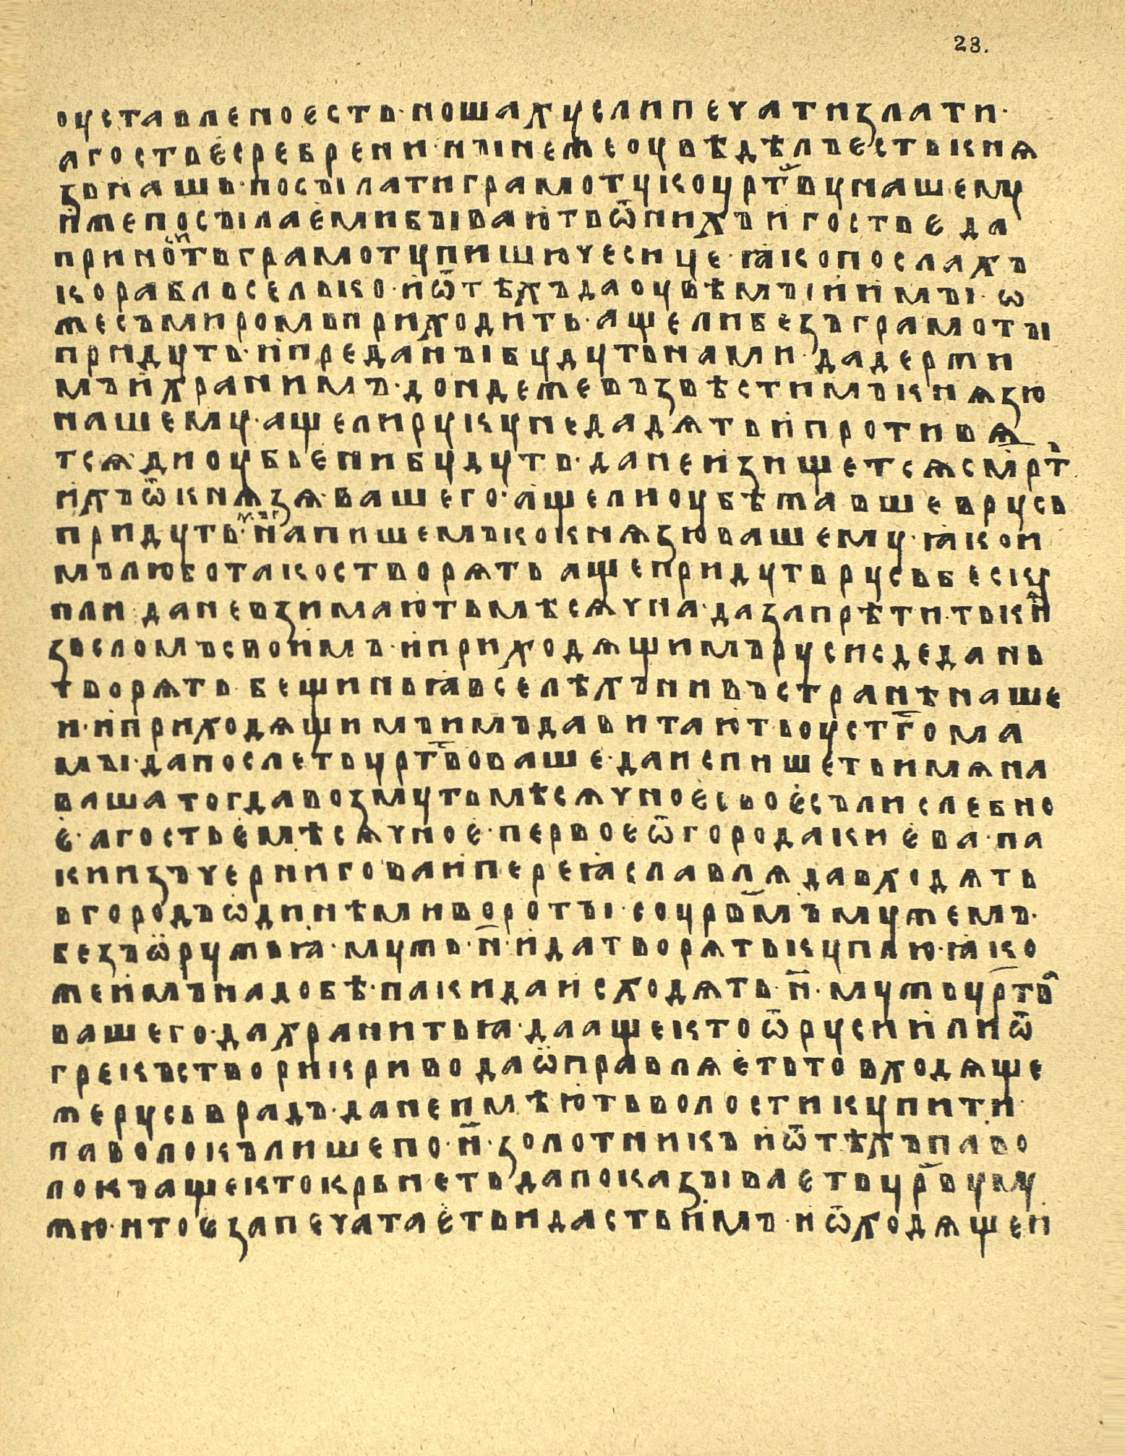 23.
оуставлено есть · ношаху сли печати злати ·
а гостьє сребрени · нъıне же оувѣдѣлъ есть кнѧ
зь нашь · посъıлати грамоту ко црт҇ву нашему
иже посъıлаеми бъıвають ѿ нихъ и гостье да
приносѧть грамоту пишюче сице · ꙗко послахъ
корабль селько · и ѿ тѣхъ да оувѣмъı и мъı · ѡ
же съ миромь приходить · аще ли безъ грамотъı
придуть · и преданъı будуть нами · да держи
мъ и хранимъ · дондеже възвѣстимъ кнѧзю
нашему · аще ли руку не дадѧть и противѧ
тсѧ да и оубьени будуть · да не изищетсѧ смр҃ть
ихъ ѿ кнѧзѧ вашего · аще ли оубѣжавше в русь
придуть · напишемъ ко кнѧзю вашему · ꙗко и
мъ любо тако створѧть аще придуть русь бес ку
пли да не взимають мѣсѧчна · да запрѣтить кн҃
зь сломъ своимъ · и приходѧщимъ руси сде да не
творѧть бещиньꙗ в селѣхъ ни въ странѣ наше
и · и приходѧщимъ имъ да витають оу ст҃го ма
мъı · да послеть црт҇во ваше · да испишеть имѧна
ваша тогда возмуть мѣсѧчное своє съли слебно
є · а гостье мѣсѧчное · первое ѿ города киева · па
ки изъ чернигова и переꙗславлѧ да входѧть
в городъ ѡдинѣми воротъı · со цр҇вмъ мужемъ ·
безъ ѡружьꙗ · мужь · н҃ · и да творѧть куплю · ꙗко
же имъ надобѣ · паки да исходѧть · н҃ · мужь црт҇ва
вашего · да хранить ꙗ · да аще кто ѿ руси или ѿ
грекъ створи криво да ѡправлѧеть то входѧще
же русь в градъ · да не имѣють волости купити
паволокъ лише по · н҃ · золотникъ и ѿ тѣхъ паво
локъ аще кто крьнеть да показъıваеть цр҇ву му
жю · и тоє запечатаєть и дасть имъ · и ѿходѧщеи